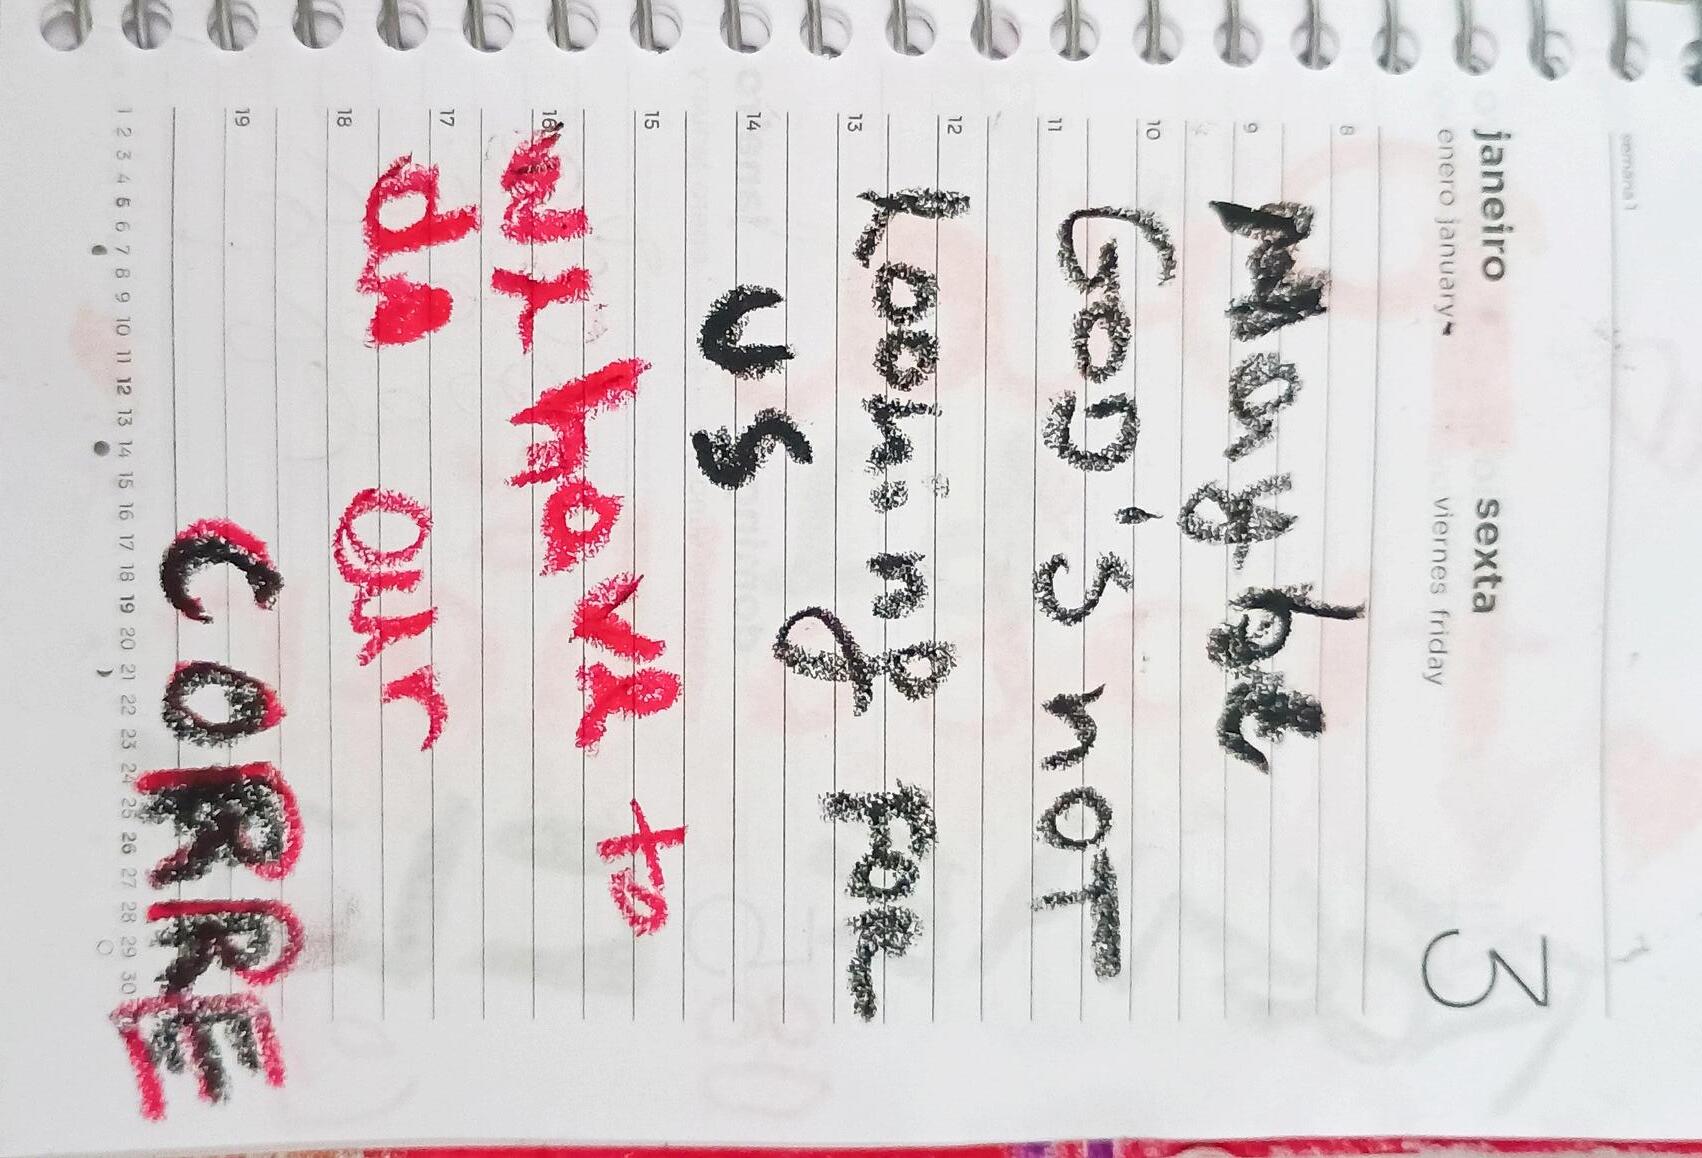 semana 1
janeiro sexta 3
enero january viernes friday
8
9
10
11
12
13
14
15
16
17
18
19
Maybe
GOD'S nOT
Looking FOR
US
WE have to
da our
CORRE
1 2 3 4 5 6 7 8 9 10 11 12 13 14 15 16 17 18 19 20 21 22 23 24 25 26 27 28 29 30